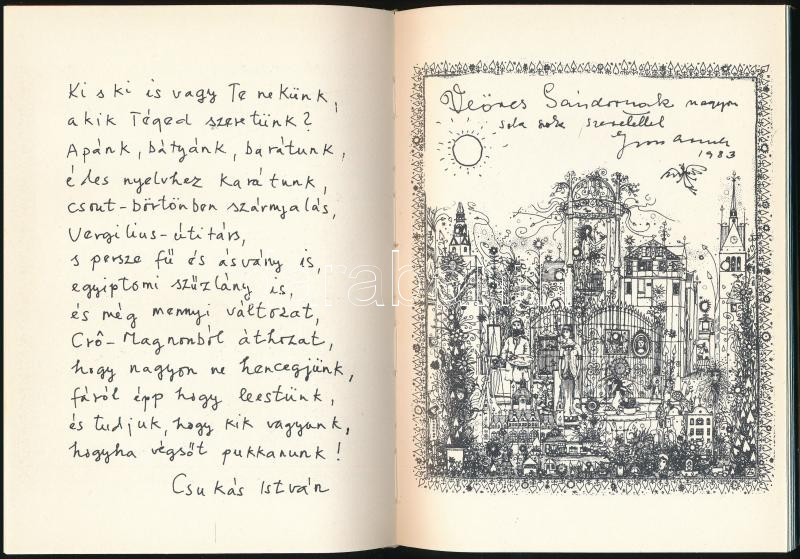 Ki s ki is vagy Te nekünk,
akik Téged szeretünk?
Apánk, bátyánk, barátunk,
édes nyelvhez karátunk,
csont-börtönben szárnyalás,
Vergilius-útitárs,
s persze fű és ásvány is,
egyiptomi szűzlány is,
és még mennyi változat,
Crô-Magnonból áthozat,
hogy nagyon ne hencegjünk,
fáról épp hogy leestünk,
és tudjuk, hogy kik vagyunk,
hogyha végsőt pukkanunk!
Csukás István
Weöres Sándornak nagyon
sok szeretettel
1983